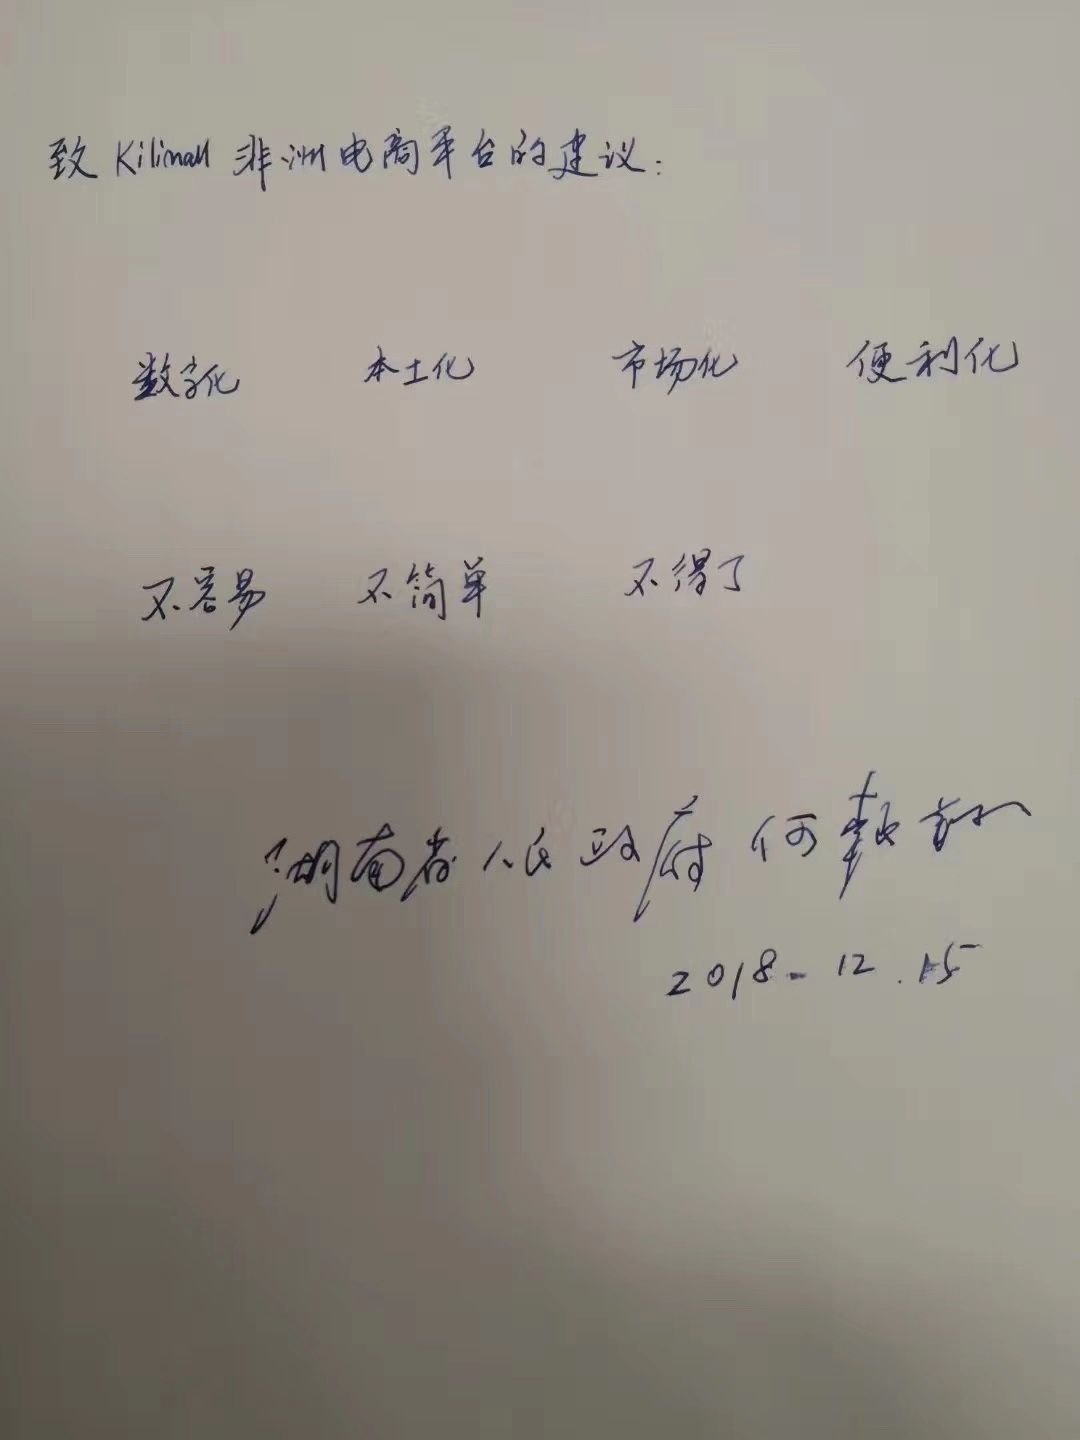 致 Kilimall 非洲电商平台的建议：
数字化 本土化 市场化 便利化
不容易 不简单 不得了
湖南省人民政府 何报翔
2018-12.15